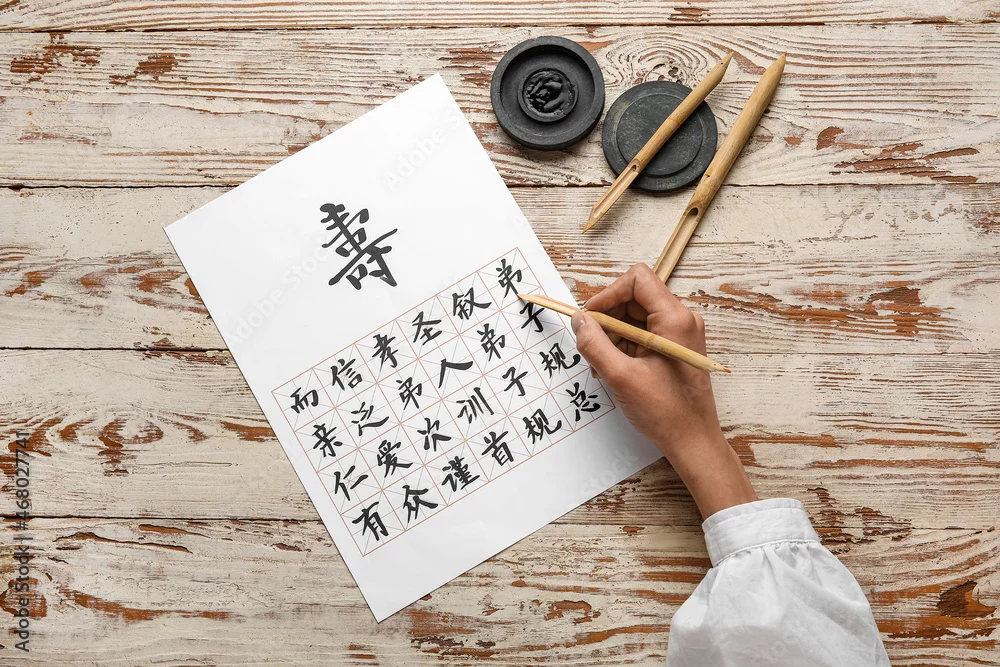 寿
弟子规总
叙弟子规
圣人训首
孝弟次谨
信泛爱众
而亲仁有
Adobe Stock | #468027741